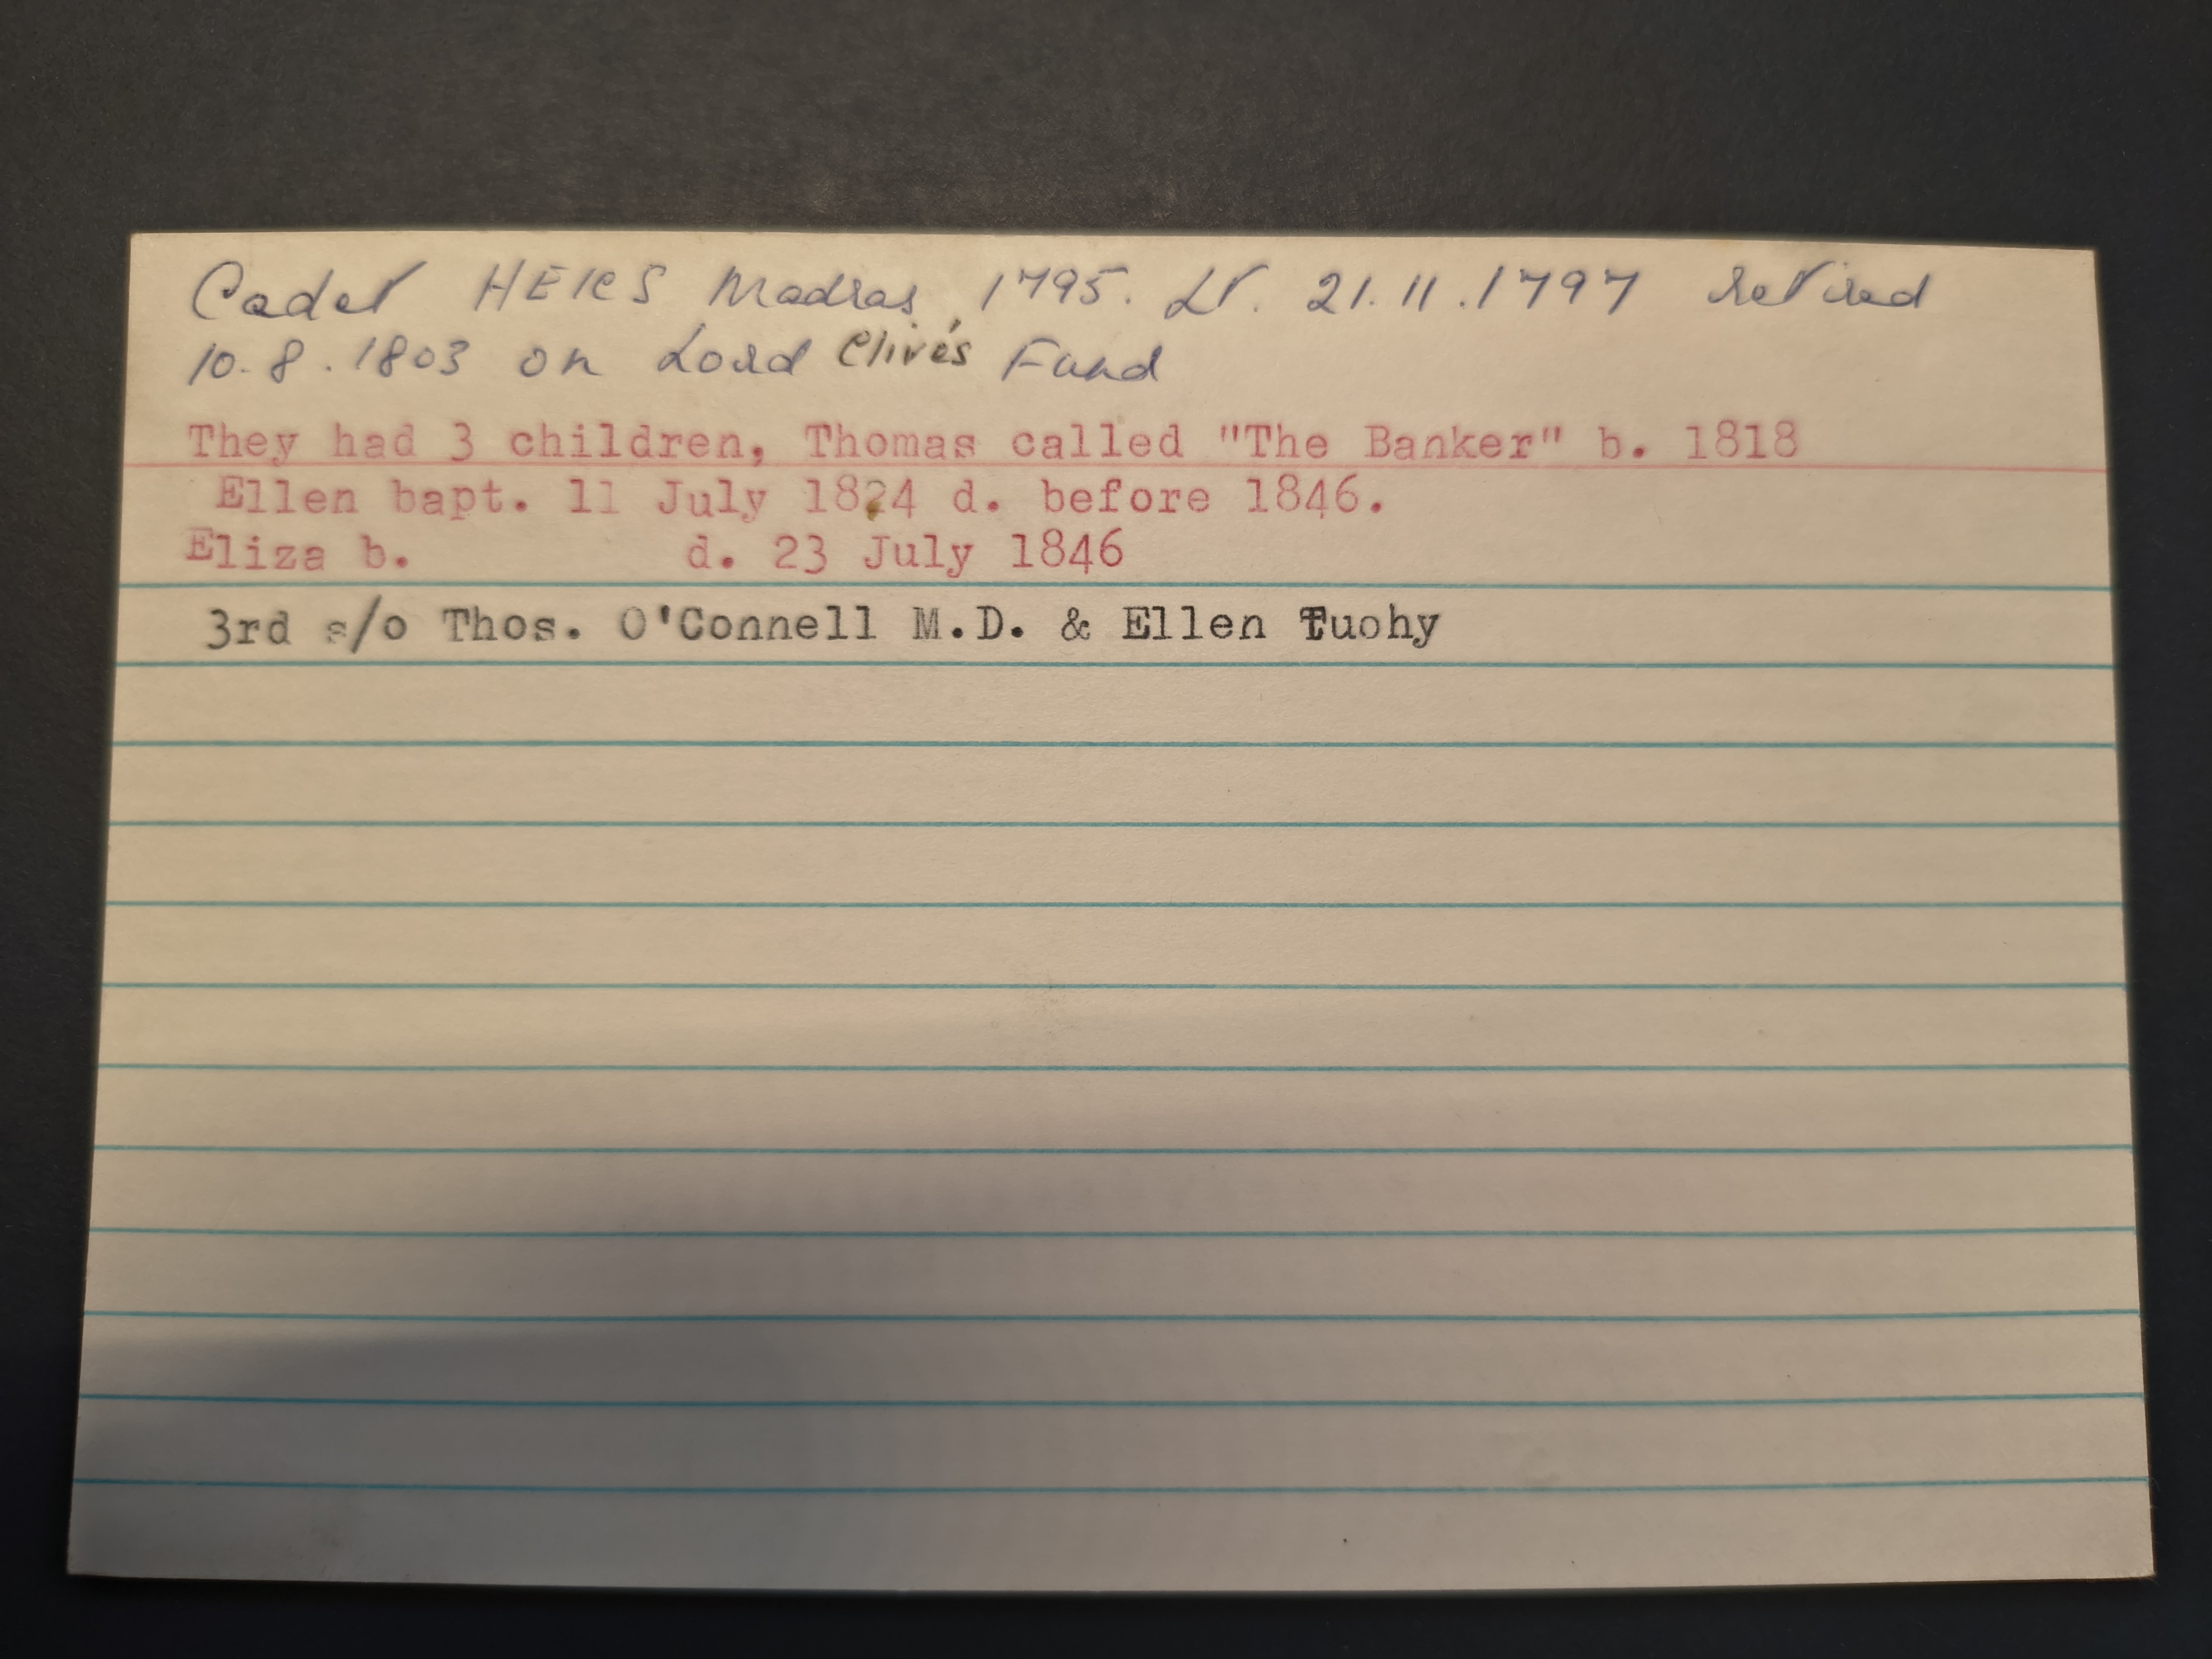 Cadet HEICS Madras, 1795. Lt. 21.11.1797 retired
10.8.1803 on Lord Clive's Fund
They had 3 children, Thomas called "The Banker" b. 1818
Ellen bapt. 11 July 1824 d. before 1846.
Eliza b. d. 23 July 1846
3rd s/o Thos. O'Connell M.D. & Ellen Tuohy